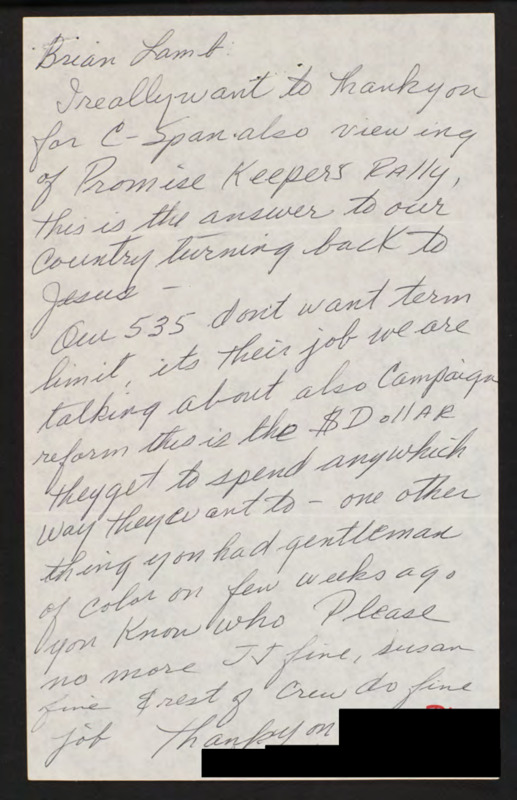 Brian Lamb
I really want to thank you
for C-Span also viewing
of Promise Keepers Rally,
this is the answer to our
Country turning back to
Jesus -
Our 535 don't want term
limit, its their job we are
talking about also Campaign
reform this is the $Dollar
they get to spend anywhich
way they want to - one other
thing you had gentleman
of color on few weeks ago
you know who Please
no more JJ fine, susan
fine & rest of crew do fine
job Thank you